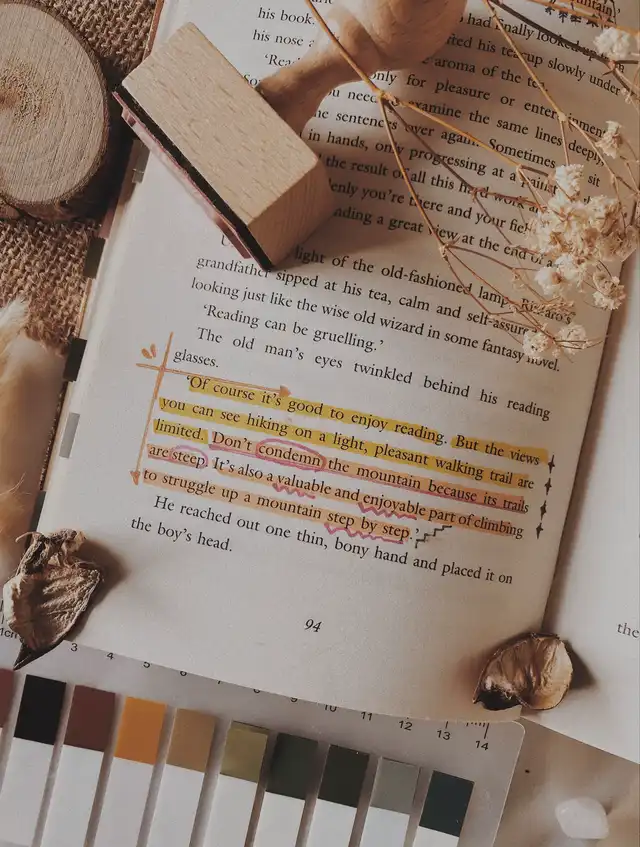 untain,'
his book. had finally looked up
his nose lifted his teacup slowly under
'Read aroma of the tea
only for pleasure or entertainment
you need examine the same lines deeply
the sentences over again. Sometimes sit
in hands, only progressing at a
the result of all this hard work
suddenly you're there and your
a great view at the end of a
light of the old-fashioned lamp,
grandfather sipped at his tea, calm and self-assured
looking just like the wise old wizard in some fantasy novel.
'Reading can be gruelling.'
The old man's eyes twinkled behind his reading
glasses.
'Of course it's good to enjoy reading. But the views
you can see hiking on a light, pleasant walking trail are
limited. Don't condemn the mountain because its trails
are steep. It's also a valuable and enjoyable part of climbing
to struggle up a mountain step by step.'
He reached out one thin, bony hand and placed it on
the boy's head.
94
the
1cm 3 4 5 6 7 8 9 10 11 12 13 14